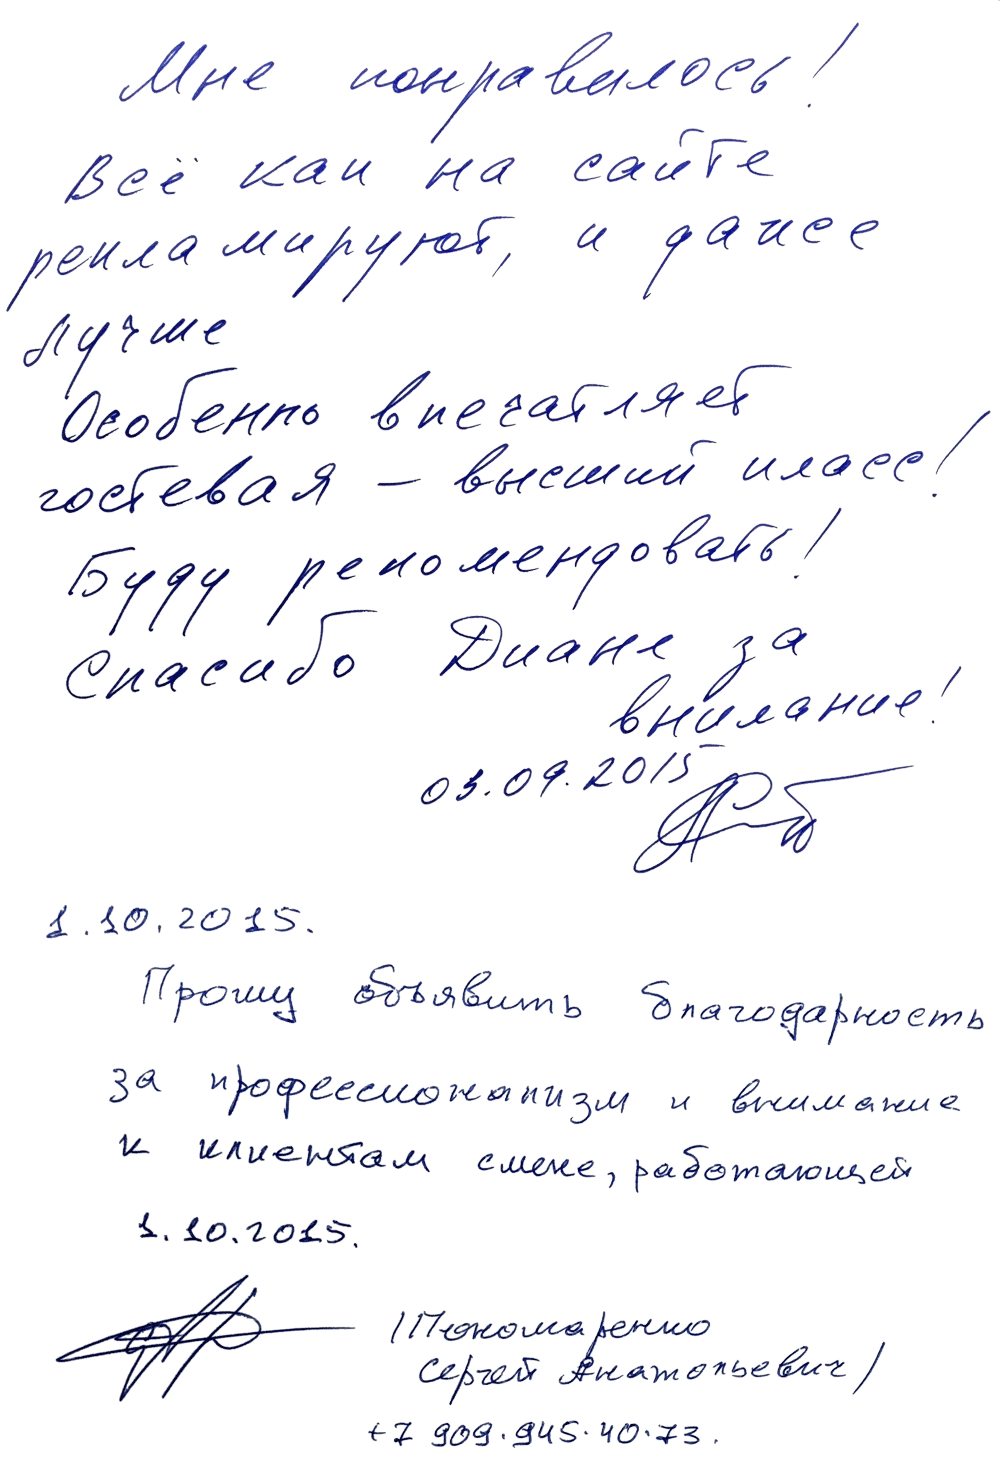 Мне понравилось!
Всё как на сайте
рекламируют, и даже
лучше
Особенно впечатляет
гостевая – высший класс!
Буду рекомендовать!
Спасибо Диане за
внимание!
03.09.2015
1.10.2015.
Прошу объявить благодарность
за профессионализм и внимание
к клиентам смене, работающей
1.10.2015.
/Пономаренко
Сергей Анатольевич/
+7 909.945.40.73.